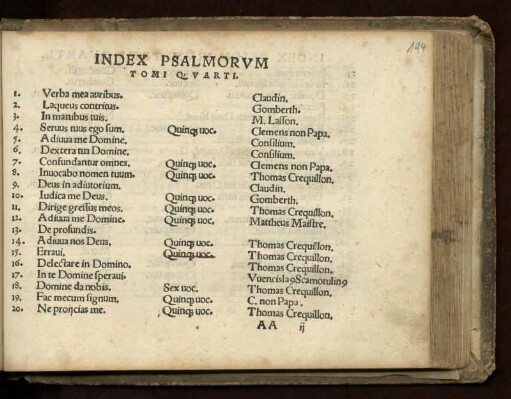 194
INDEX PSALMORVM
TOMI QVARTI.
1. Verba mea auribus. Claudin.
2. Laqueus contritus. Gomberth.
3. In manibus tuis. M. Lasson.
4. Seruus tuus ego sum. Quinq; uoc. Clemens non Papa.
5. Adiuua me Domine. Consilium.
6. Dextera tua Domine. Consilium.
7. Confundantur omnes. Quinq; uoc. Clemens non Papa.
8. Inuocabo nomen tuum. Quinq; uoc. Thomas Crequillon.
9. Deus in adiutorium. Claudin.
10. Iudica me Deus. Quinq; uoc. Gomberth.
11. Dirige gressus meos. Quinq; uoc. Thomas Crequillon.
12. Adiuua me Domine. Quinq; uoc. Mattheus Maistre.
13. De profundis.
14. Adiuua nos Deus. Quinq; uoc. Thomas Crequillon.
15. Erraui. Quinq; uoc. Thomas Crequillon.
16. Delectare in Domino. Thomas Crequillon.
17. In te Domine speraui. Vuencisla9 Scamotulin9
18. Domine da nobis. Sex uoc. Thomas Crequillon.
19. Fac mecum signum. Quinq; uoc. C. non Papa.
20. Ne proijcias me. Quinq; uoc. Thomas Crequillon.
AA ij